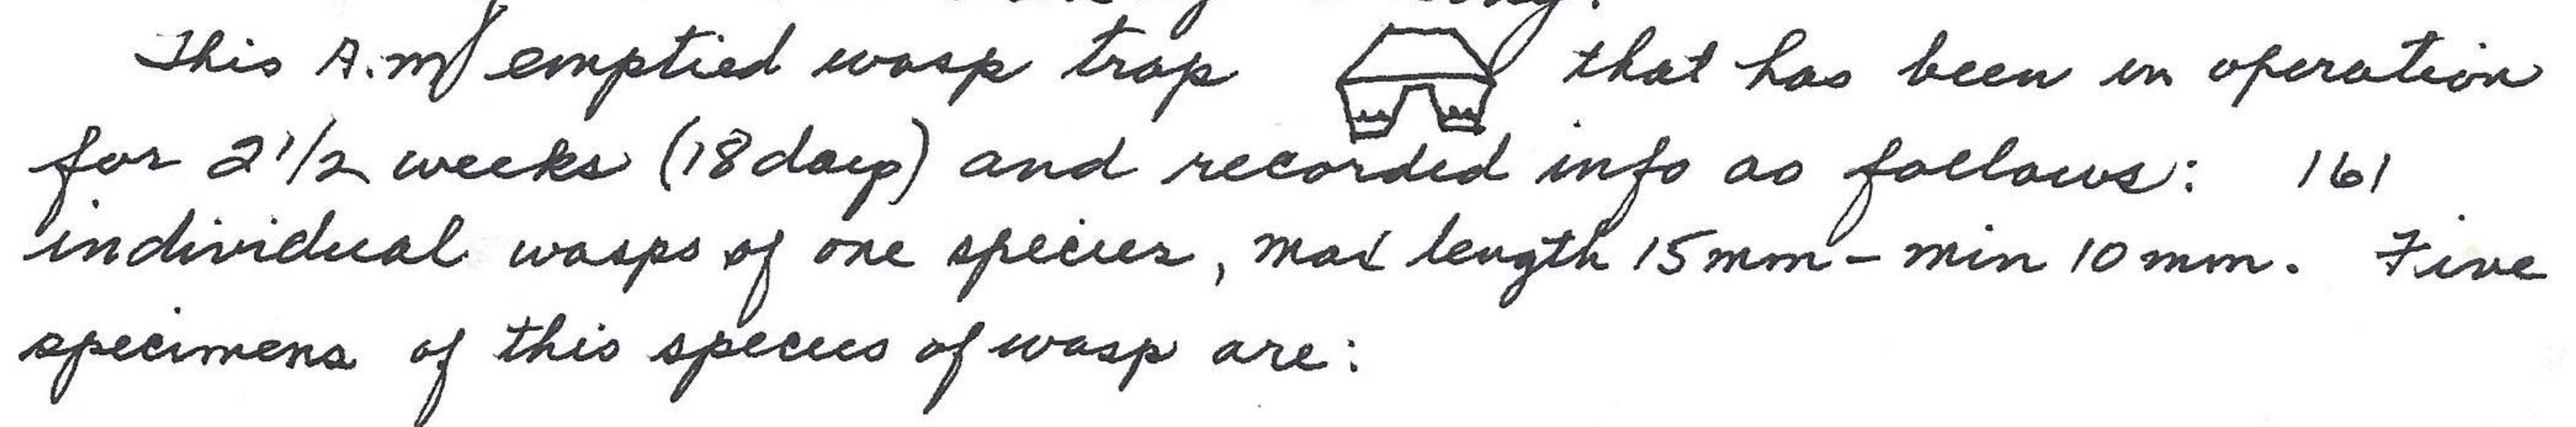 This A.M emptied wasp trap that has been in operation
for 2 1/2 weeks (18 days) and recorded info as follows: 161
individual wasps of one species, max length 15 mm - min 10 mm. Five
specimens of this species of wasp are: